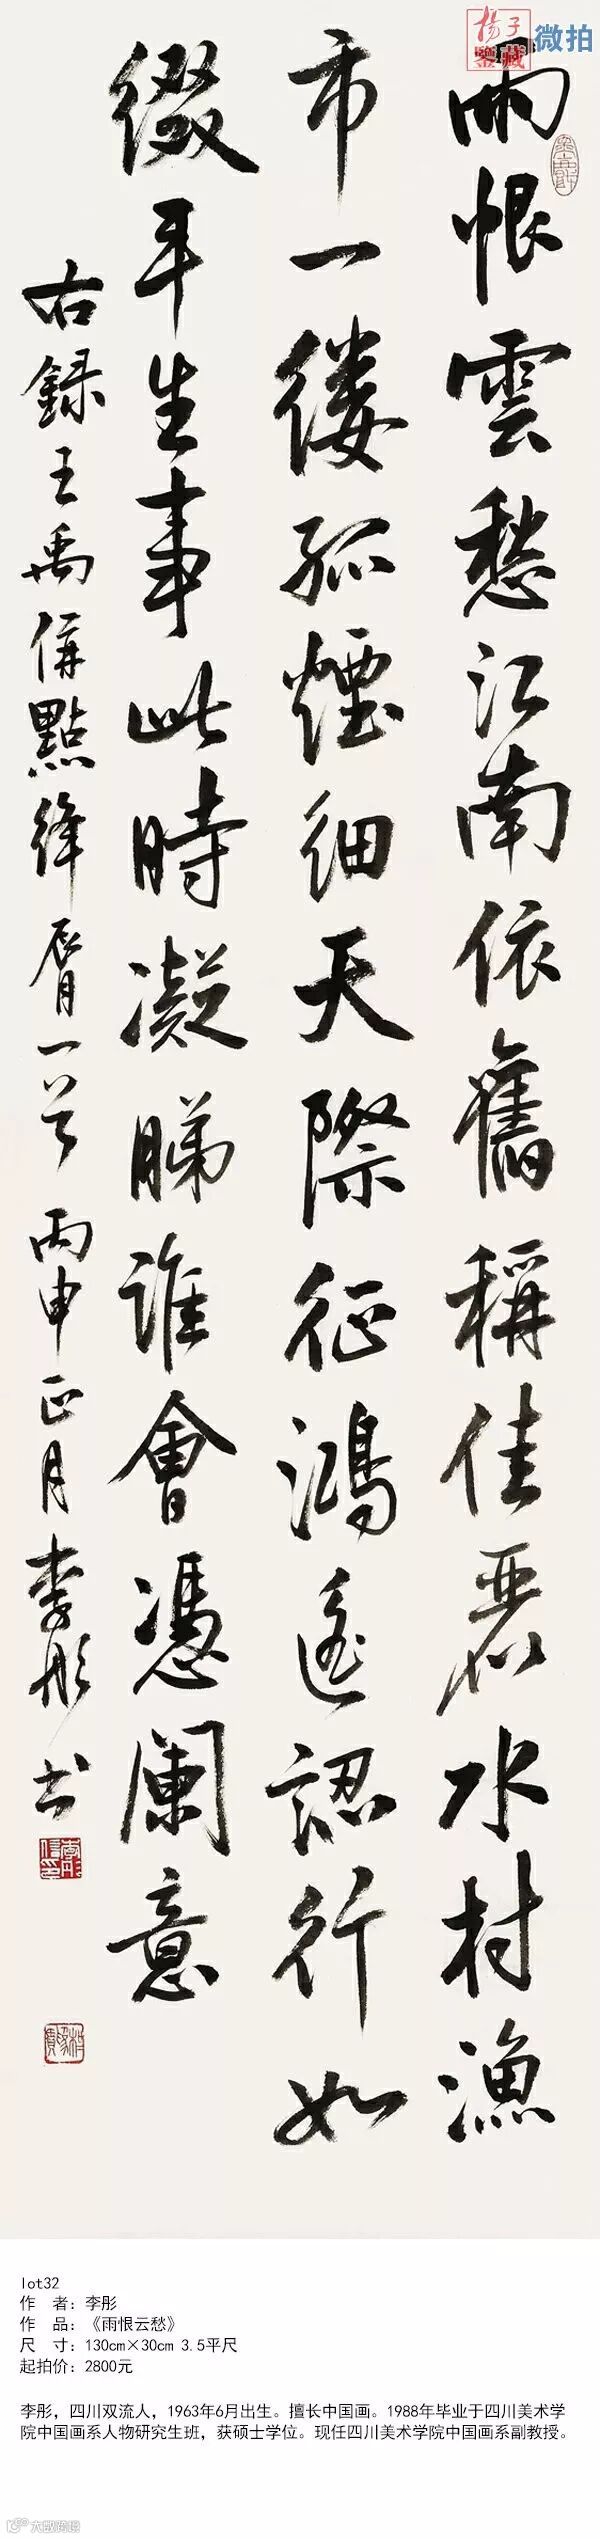 揚子
鑒藏
微拍
雨恨雲愁江南依舊稱佳麗水村漁
市一縷孤煙細天際征鴻遙認行如
綴平生事此時凝睇誰會憑闌意
右錄王禹偁點絳脣一首 丙申正月李彤书
lot32
作 者：李彤
作 品：《雨恨云愁》
尺 寸：130cm×30cm 3.5平尺
起拍价：2800元
李彤，四川双流人，1963年6月出生。擅长中国画。1988年毕业于四川美术学
院中国画系人物研究生班，获硕士学位。现任四川美术学院中国画系副教授。
大数跨境